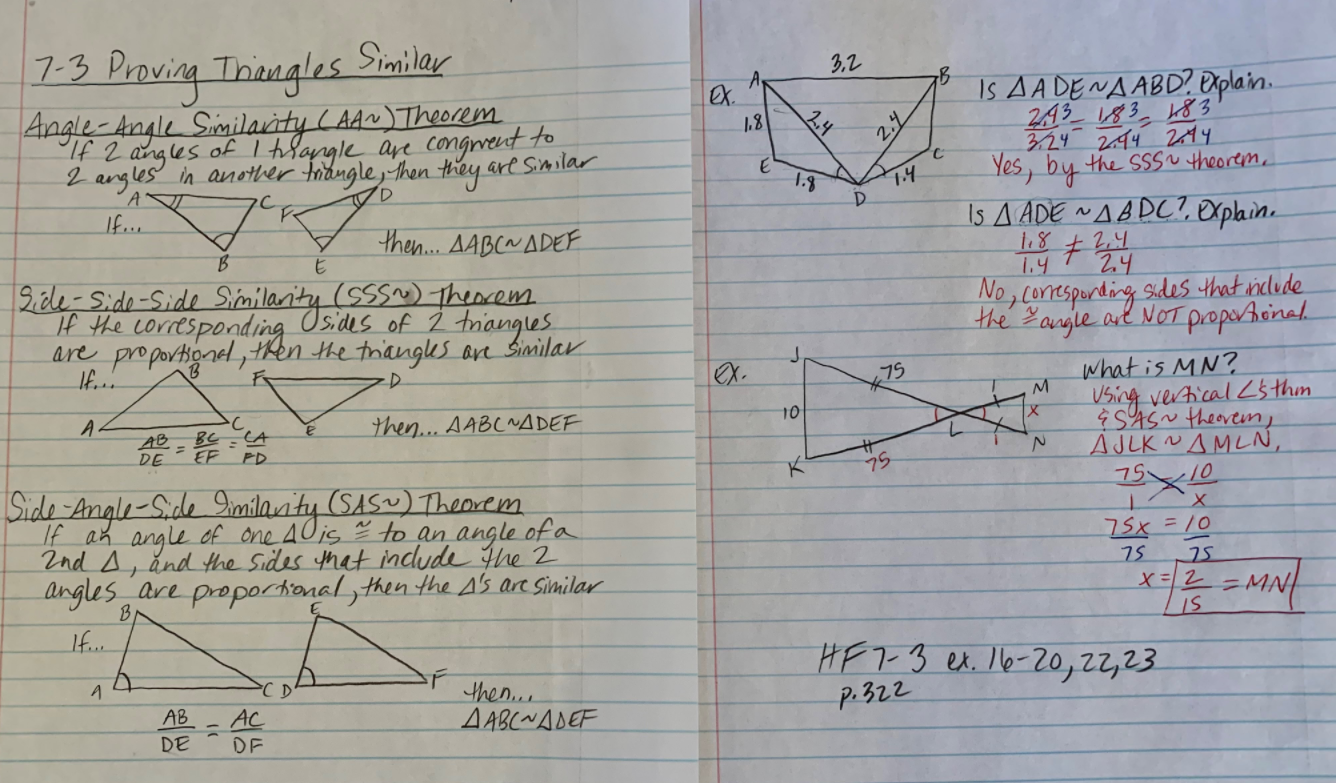 7-3 Proving Triangles Similar
Angle-Angle Similarity (AA~) Theorem
If 2 angles of 1 triangle are congruent to
2 angles in another triangle, then they are similar
If...
A
C
B
F
D
E
then... △ABC~△DEF
Side-Side-Side Similarity (SSS~) Theorem
If the corresponding sides of 2 triangles
are proportional, then the triangles are similar
If...
B
A
C
F
D
E
AB/DE = BC/EF = CA/FD
then... △ABC~△DEF
Side-Angle-Side Similarity (SAS~) Theorem
If an angle of one △ is ≅ to an angle of a
2nd △, and the sides that include the 2
angles are proportional, then the △'s are similar
If...
B
A
C
E
D
F
AB/DE = AC/DF
then...
△ABC~△DEF
Ex.
A
3.2
B
1.8
2.4
2.4
E
C
1.8
1.4
D
Is △ADE~△ABD? Explain.
2.4 3/3.2 4 = 1.8 3/2.4 4 = 1.8 3/2.4 4
Yes, by the SSS~ theorem.
Is △ADE ~ △BDC? Explain.
1.8/1.4 ≠ 2.4/2.4
No, corresponding sides that include
the ≅ angle are NOT proportional.
Ex.
J
75
1
M
10
x
L
N
K
75
1
What is MN?
Using vertical ∠'s thm
& SAS~ theorem,
△JLK ~ △MLN,
75/1 = 10/x
75x/75 = 10/75
x = 2/15 = MN
HF 7-3 ex. 16-20, 22, 23
p. 322